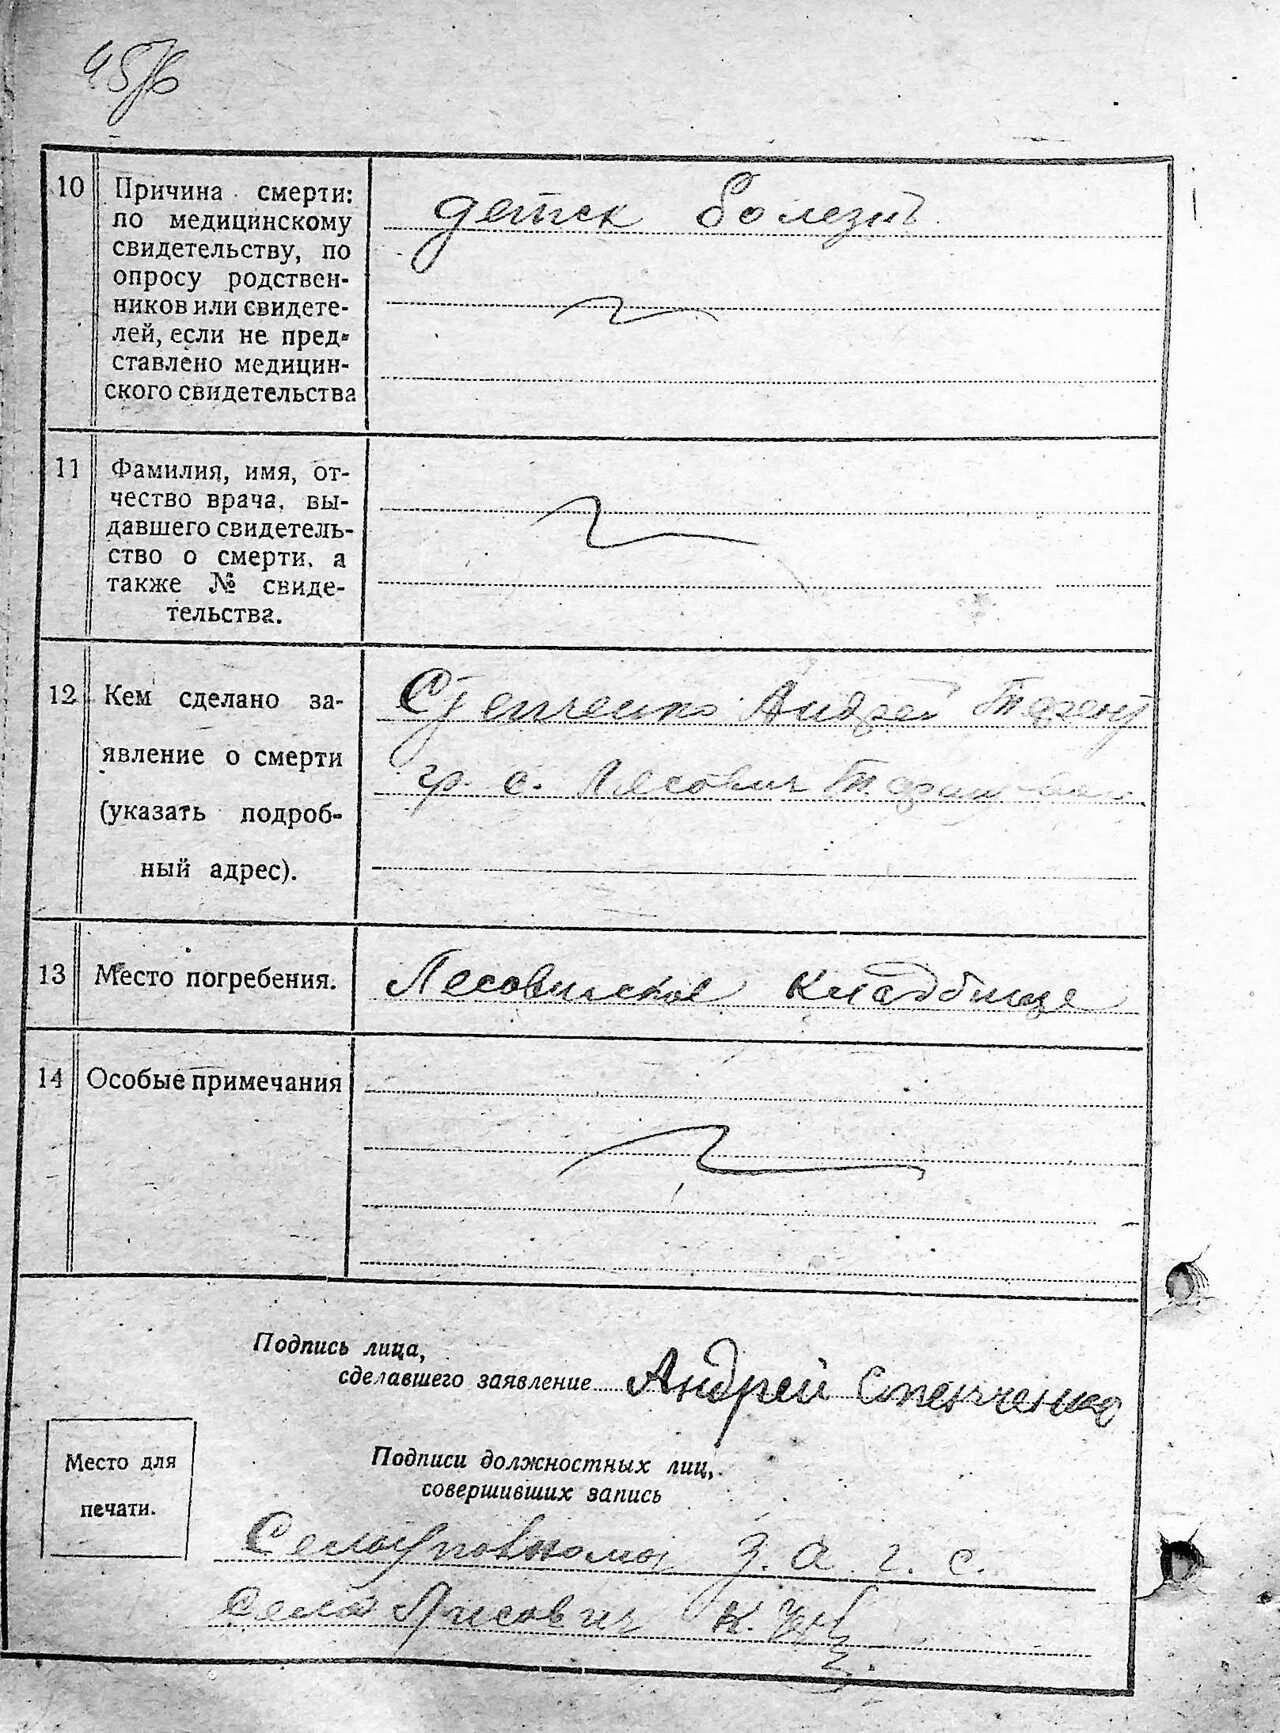 10 Причина смерти:
по медицинскому
свидетельству, по
опросу родствен-
ников или свидете-
лей, если не пред-
ставлено медицин-
ского свидетельства
детск болезнь
11 Фамилия, имя, от-
чество врача, вы-
давшего свидетель-
ство о смерти, а
также № свиде-
тельства.
12 Кем сделано за-
явление о смерти
(указать подроб-
ный адрес).
Андрей
гр. с.
13 Место погребения.
Лесовицкое кладбище
14 Особые примечания
Подпись лица,
сделавшего заявление Андрей Стенченко
Место для
печати.
Подписи должностных лиц,
совершивших запись
з. а. г. с.
села Лисович К.